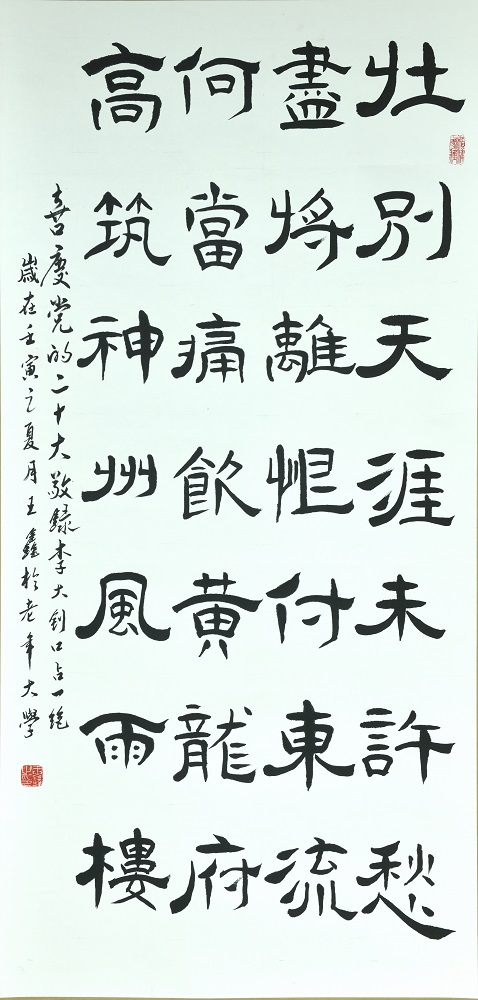 壮別天涯未許愁
盡將離恨付東流
何當痛飲黄龍府
高筑神州風雨樓
喜慶党的二十大敬録李大釗口占一绝
歲在壬寅之夏月王鑫於老年大學